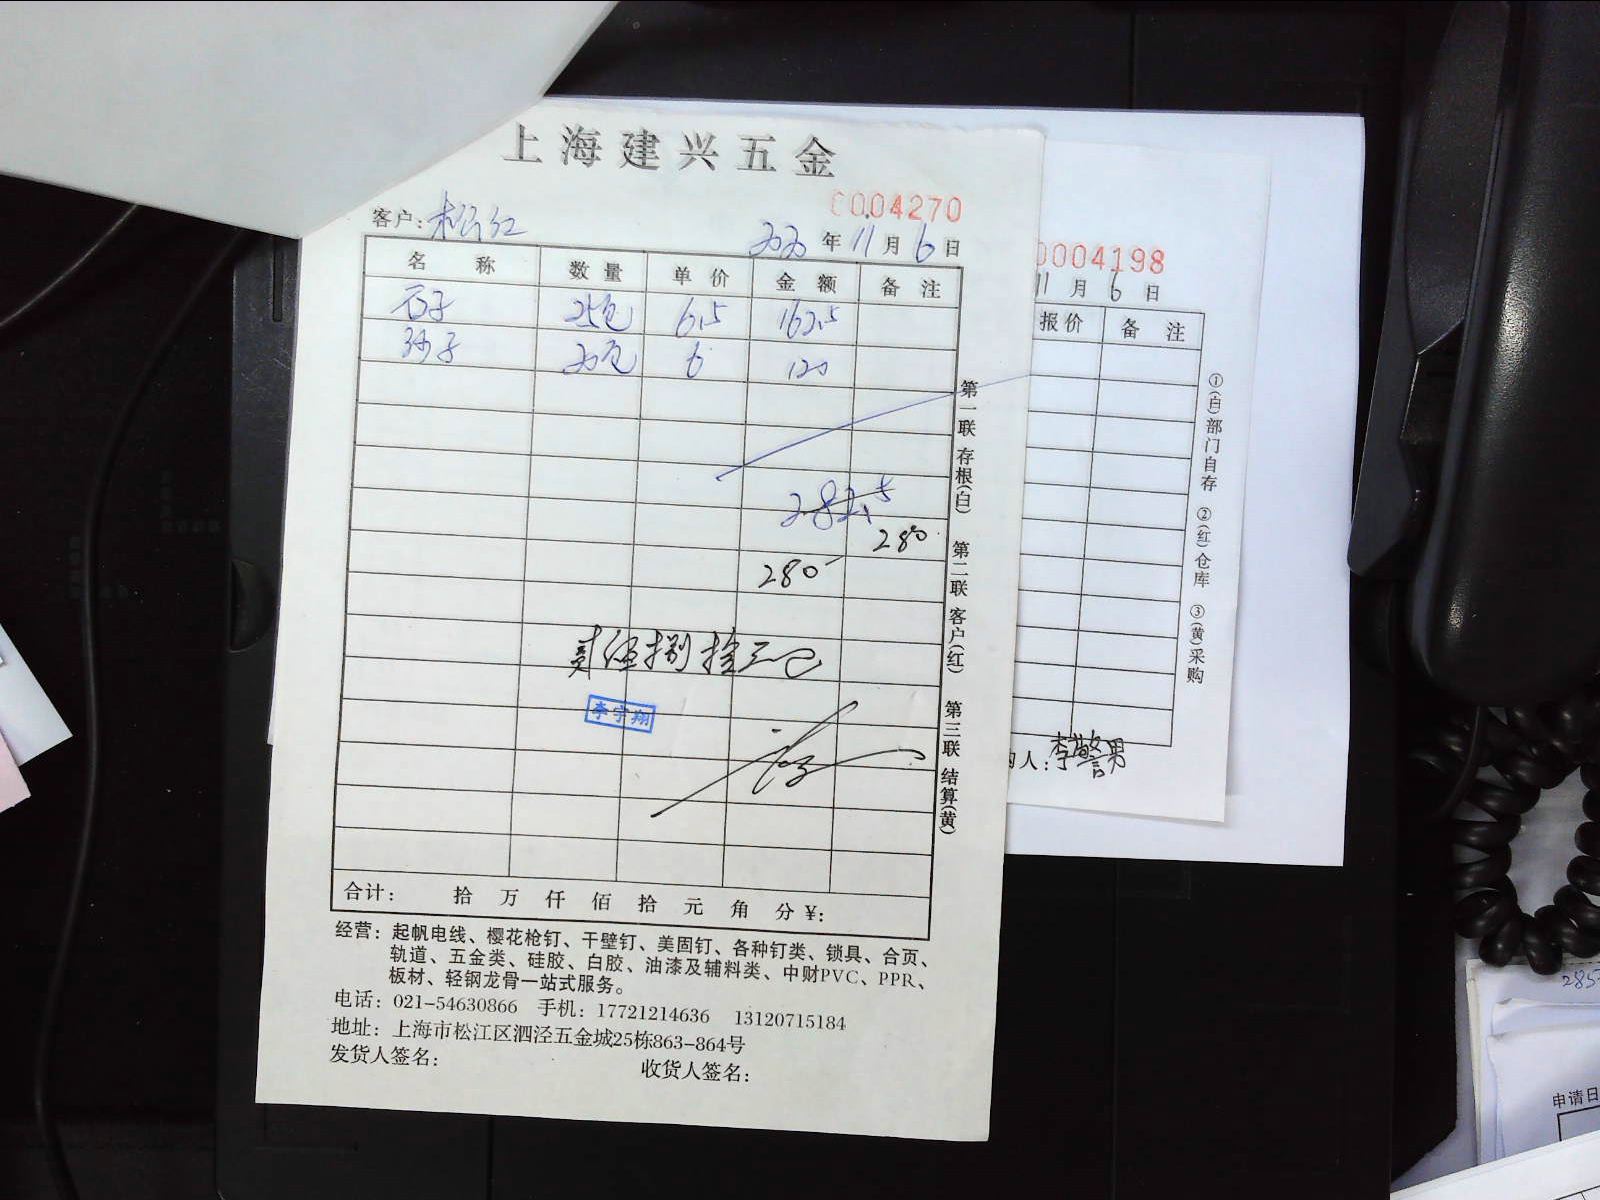 上海建兴五金
0004270
客户: 松江
2020 年 11 月 6 日
名 称 数量 单价 金额 备注
石子 25包 6.5 162.5
沙子 20包 6 120
282.5
280
280
贰佰捌拾元
李宇翔
第一联 存根(白) 第二联 客户(红) 第三联 结算(黄)
合计: 拾 万 仟 佰 拾 元 角 分 ¥:
经营: 起帆电线、樱花枪钉、干壁钉、美固钉、各种钉类、锁具、合页、
轨道、五金类、硅胶、白胶、油漆及辅料类、中财PVC、PPR、
板材、轻钢龙骨一站式服务。
电话: 021-54630866 手机: 17721214636 13120715184
地址: 上海市松江区泗泾五金城25栋863-864号
发货人签名: 收货人签名:
0004198
11 月 6 日
报价 备注
①(白)部门自存 ②(红)仓库 ③(黄)采购
人: 李警男
申请日